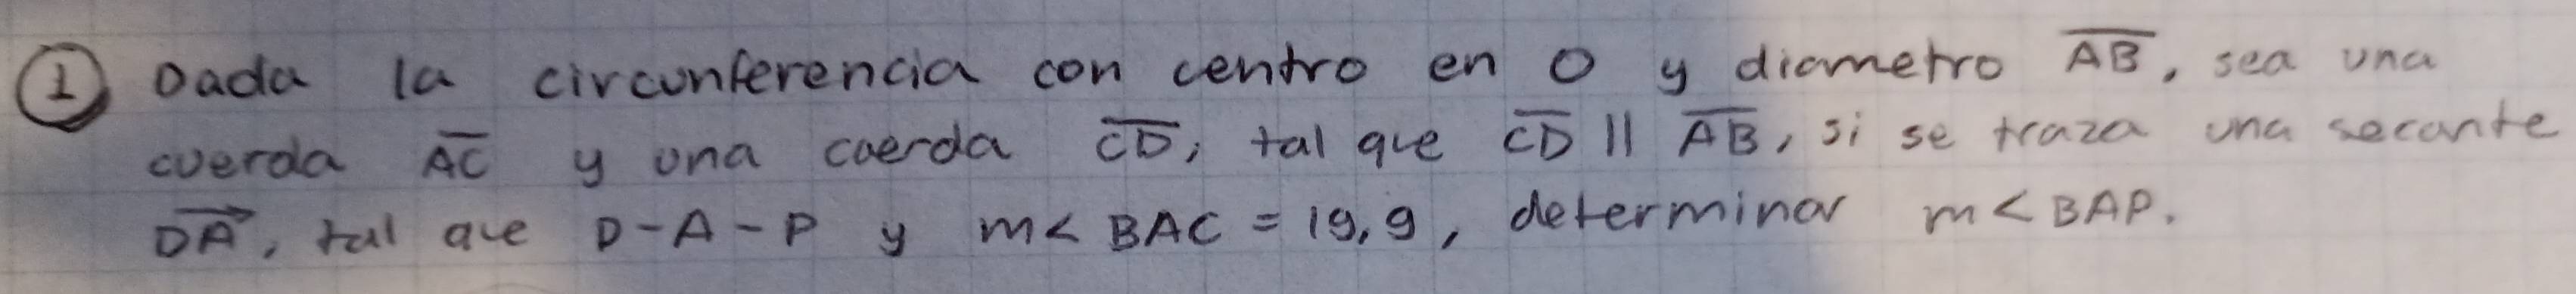 ① Dada la circunferencia con centro en O y diametro AB, sea una
cuerda AC y una cuerda CD, tal que CD || AB, si se traza una secante
DA, tal que D-A-P y m< BAC = 19,9, determinar m<BAP.